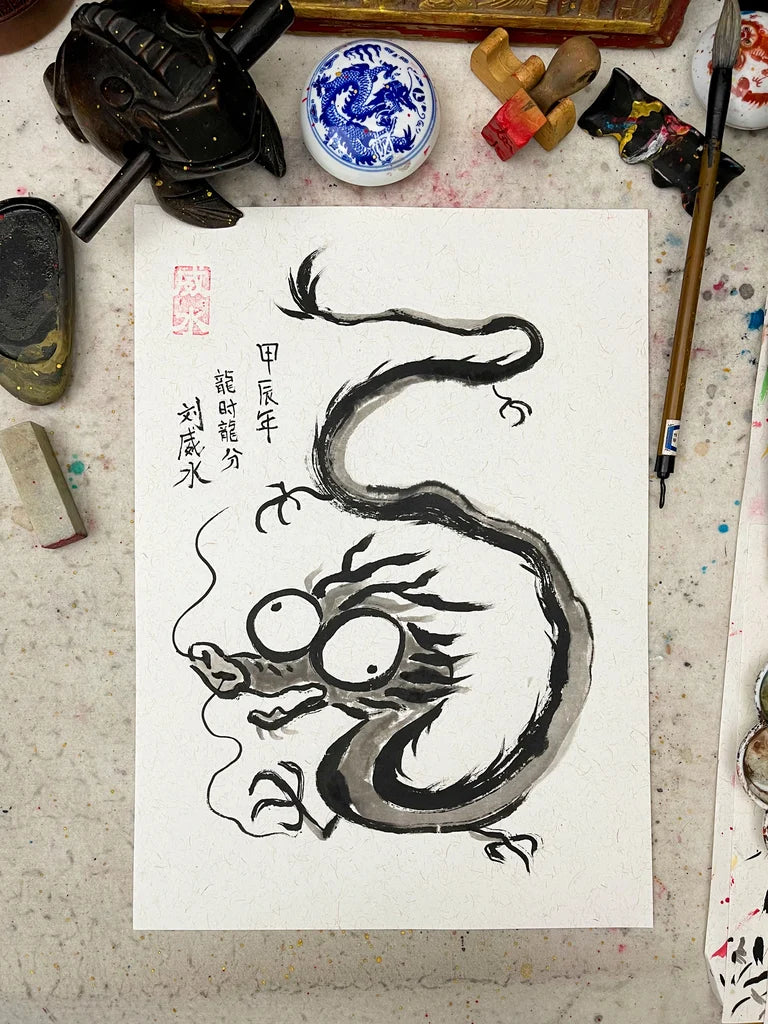 甲辰年
龍时龍分
刘威水
威水